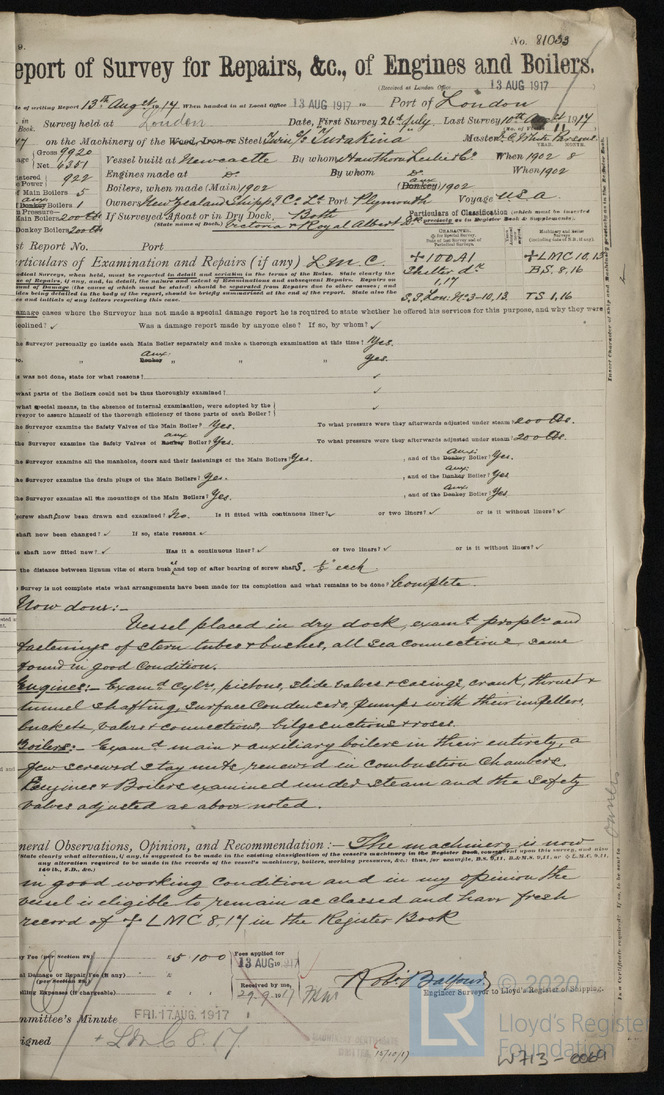 No. 81033
eport of Survey for Repairs, &c., of Engines and Boilers.
(Received at London Office 13 AUG 1917)
of writing Report 13th Augst 1917 When handed in at Local Office 13 AUG 1917 Port of London
Survey held at London Date, First Survey 26th July Last Survey 10th August 1917
on the Machinery of the Wood, Iron or Steel Twin S/S "Turakina" Master
Gross 9920 Vessel built at Newcastle By whom Hawthorn Leslie & Co. When 1902 8
Net 6351
922 Engines made at Do. By whom Do. When 1902
Main Boilers 5 Boilers, when made (Main) 1902 (Donkey) aux 1902
Donkey Boilers 1 Owners New Zealand Shipg Co. Ld. Port Plymouth Voyage U.S.A.
Main Boilers 200 lbs If Surveyed Afloat or in Dry Dock Both
(State name of Dock.) Victoria & Royal Albert Dk
Donkey Boilers 200 lbs
Particulars of Classification (which must be inserted precisely as in Register Book & Supplement).
st Report No. Port
articulars of Examination and Repairs (if any) L.M.C.
+100A1 +LMC 10,13
Shelter dk B.S. 8,16
1,17
S.S. Lon. No 3-10,13 T.S. 1,16
amage cases where the Surveyor has not made a special damage report he is required to state whether he offered his services for this purpose, and why they were
eclined? ✓ Was a damage report made by anyone else? If so, by whom? ✓
he Surveyor personally go inside each Main Boiler separately and make a thorough examination at this time? Yes.
Do. " Donkey Aux: " " Yes.
was not done, state for what reasons? ✓
what parts of the Boilers could not be thus thoroughly examined? ✓
what special means, in the absence of internal examination, were adopted by the
rveyor to assure himself of the thorough efficiency of those parts of each Boiler? ✓
he Surveyor examine the Safety Valves of the Main Boiler? Yes. To what pressure were they afterwards adjusted under steam? 200 lbs.
the Surveyor examine the Safety Valves of Donkey aux Boiler? Yes. To what pressure were they afterwards adjusted under steam? 200 lbs.
he Surveyor examine all the manholes, doors and their fastenings of the Main Boilers? Yes. , and of the Donkey Aux: Boiler? Yes.
he Surveyor examine the drain plugs of the Main Boilers? Yes. , and of the Donkey Aux: Boiler? Yes
he Surveyor examine all the mountings of the Main Boilers? Yes , and of the Donkey Aux: Boiler? Yes
screw shaft now been drawn and examined? No. Is it fitted with continuous liner? ✓ or two liners? ✓ or is it without liners? ✓
shaft now been changed? ✓ If so, state reasons ✓
shaft now fitted new? ✓ Has it a continuous liner? ✓ or two liners? ✓ or is it without liner? ✓
the distance between lignum vitæ of stern bush and top of after bearing of screw shafts. each
Survey is not complete state what arrangements have been made for its completion and what remains to be done? Complete.
Now done:-
Vessel placed in dry dock, examd proplrs and
fastenings of stern tubes & bushes, all sea connections same
found in good condition.
Engines:- Examd cylrs, pistons, slide valves & casings, crank, thrust &
tunnel shafting, surface condensers, pumps with their impellers,
buckets, valves & connections, bilge suctions & roses.
Boilers:- Examd main & auxiliary boilers in their entirety, a
few screwed stay nuts renewed in combustion chambers.
Engines & Boilers examined under steam and the safety
valves adjusted as above noted.
neral Observations, Opinion, and Recommendation:- The machinery is now
in good working condition and in my opinion the
vessel is eligible to remain as classed and have fresh
record of + LMC 8.17 in the Register Book
y Fee (per Section 28) £5 10 0 Fees applied for
13 AUG 1917
al Damage or Repair Fee (if any) £
(per Section 28.)
lling Expenses (if chargeable) £ Received by me,
29.9.1917
Robt Balfour
Engineer Surveyor to Lloyd's Register of Shipping.
mmittee's Minute FRI. 17 AUG. 1917
igned + LMC 8.17
15/10/17
© 2020
LR
Lloyd's Register
Foundation
W713-0069